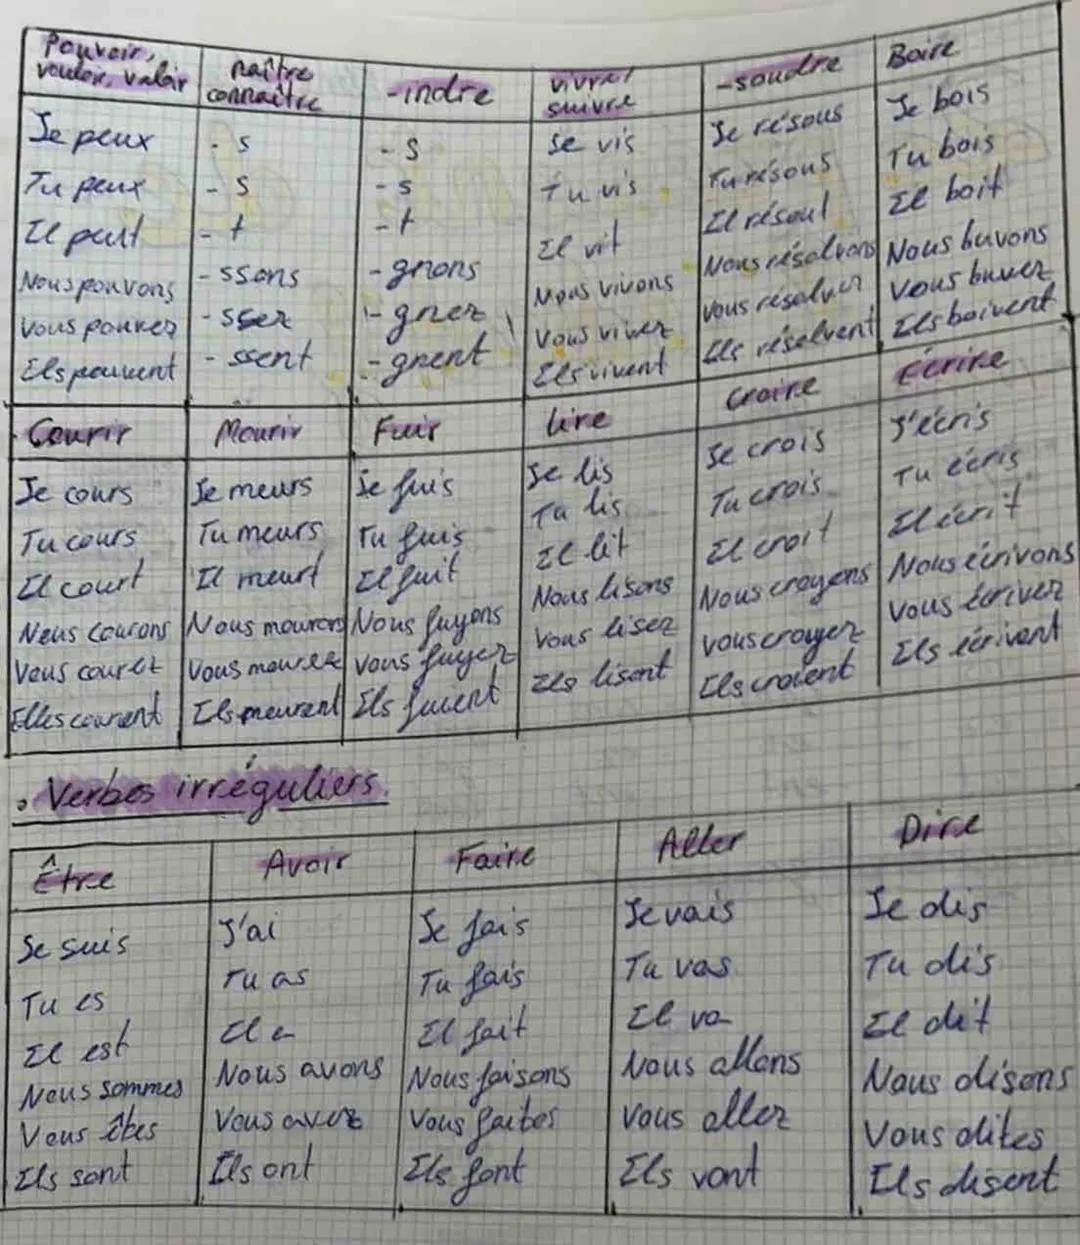 Pouvoir,
vouloir, valoir
Je peux
Tu peux
Il peut
Nous pouvons
Vous pouvez
Ils peuvent
naître
connaître
- s
- s
- t
- ssons
- ssez
- ssent
-indre
- s
- s
- t
- gnons
- gnez
- gnent
vivre/
suivre
Je vis
Tu vis
Il vit
Nous vivons
Vous vivez
Ils vivent
-soudre
Je résous
Tu résous
Il résout
Nous résolvons
Vous résolvez
Ils résolvent
Boire
Je bois
Tu bois
Il boit
Nous buvons
Vous buvez
Ils boivent
Courir
Je cours
Tu cours
Il court
Nous courons
Vous courez
Elles courent
Mourir
Je meurs
Tu meurs
Il meurt
Nous mourons
Vous mourez
Ils meurent
Fuir
Je fuis
Tu fuis
Il fuit
Nous fuyons
Vous fuyez
Ils fuient
Lire
Je lis
Tu lis
Il lit
Nous lisons
Vous lisez
Ils lisent
Croire
Je crois
Tu crois
Il croit
Nous croyons
Vous croyez
Ils croient
Écrire
J'écris
Tu écris
Il écrit
Nous écrivons
Vous écrivez
Ils écrivent
• Verbes irréguliers.
Être
Je suis
Tu es
Il est
Nous sommes
Vous êtes
Ils sont
Avoir
J'ai
Tu as
Il a
Nous avons
Vous avez
Ils ont
Faire
Je fais
Tu fais
Il fait
Nous faisons
Vous faites
Ils font
Aller
Je vais
Tu vas
Il va
Nous allons
Vous allez
Ils vont
Dire
Je dis
Tu dis
Il dit
Nous disons
Vous dites
Ils disent